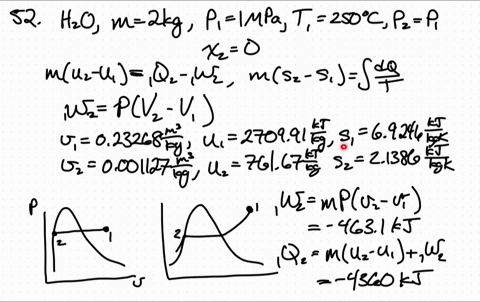 52. H₂O, m=2kg, P₁=1MPa, T₁=250°C, P₂=P₁
x₂=0
m(u₂-u₁)=₁Q₂-₁W₂, m(s₂-s₁)=∫dQ/T
₁W₂=P(V₂-V₁)
v₁=0.23268 m³/kg, u₁=2709.91 kJ/kg, s₁=6.9246 kJ/kgK
v₂=0.001127 m³/kg, u₂=761.67 kJ/kg s₂=2.1386 kJ/kgK
P 2 1 v
2 1
₁W₂=mP(v₂-v₁)
=-463.1 kJ
₁Q₂=m(u₂-u₁)+₁W₂
=-4360 kJ